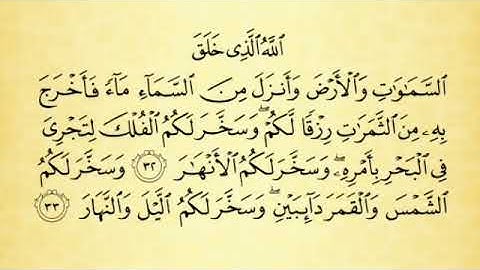 ٱللَّهُ ٱلَّذِى خَلَقَ
ٱلسَّمَـٰوَٰتِ وَٱلْأَرْضَ وَأَنزَلَ مِنَ ٱلسَّمَآءِ مَآءً فَأَخْرَجَ
بِهِۦ مِنَ ٱلثَّمَرَٰتِ رِزْقًا لَّكُمْ ۖ وَسَخَّرَ لَكُمُ ٱلْفُلْكَ لِتَجْرِىَ
فِى ٱلْبَحْرِ بِأَمْرِهِۦ ۖ وَسَخَّرَ لَكُمُ ٱلْأَنْهَـٰرَ ٣٢ وَسَخَّرَ لَكُمُ
ٱلشَّمْسَ وَٱلْقَمَرَ دَآئِبَيْنِ ۖ وَسَخَّرَ لَكُمُ ٱلَّيْلَ وَٱلنَّهَارَ ٣٣